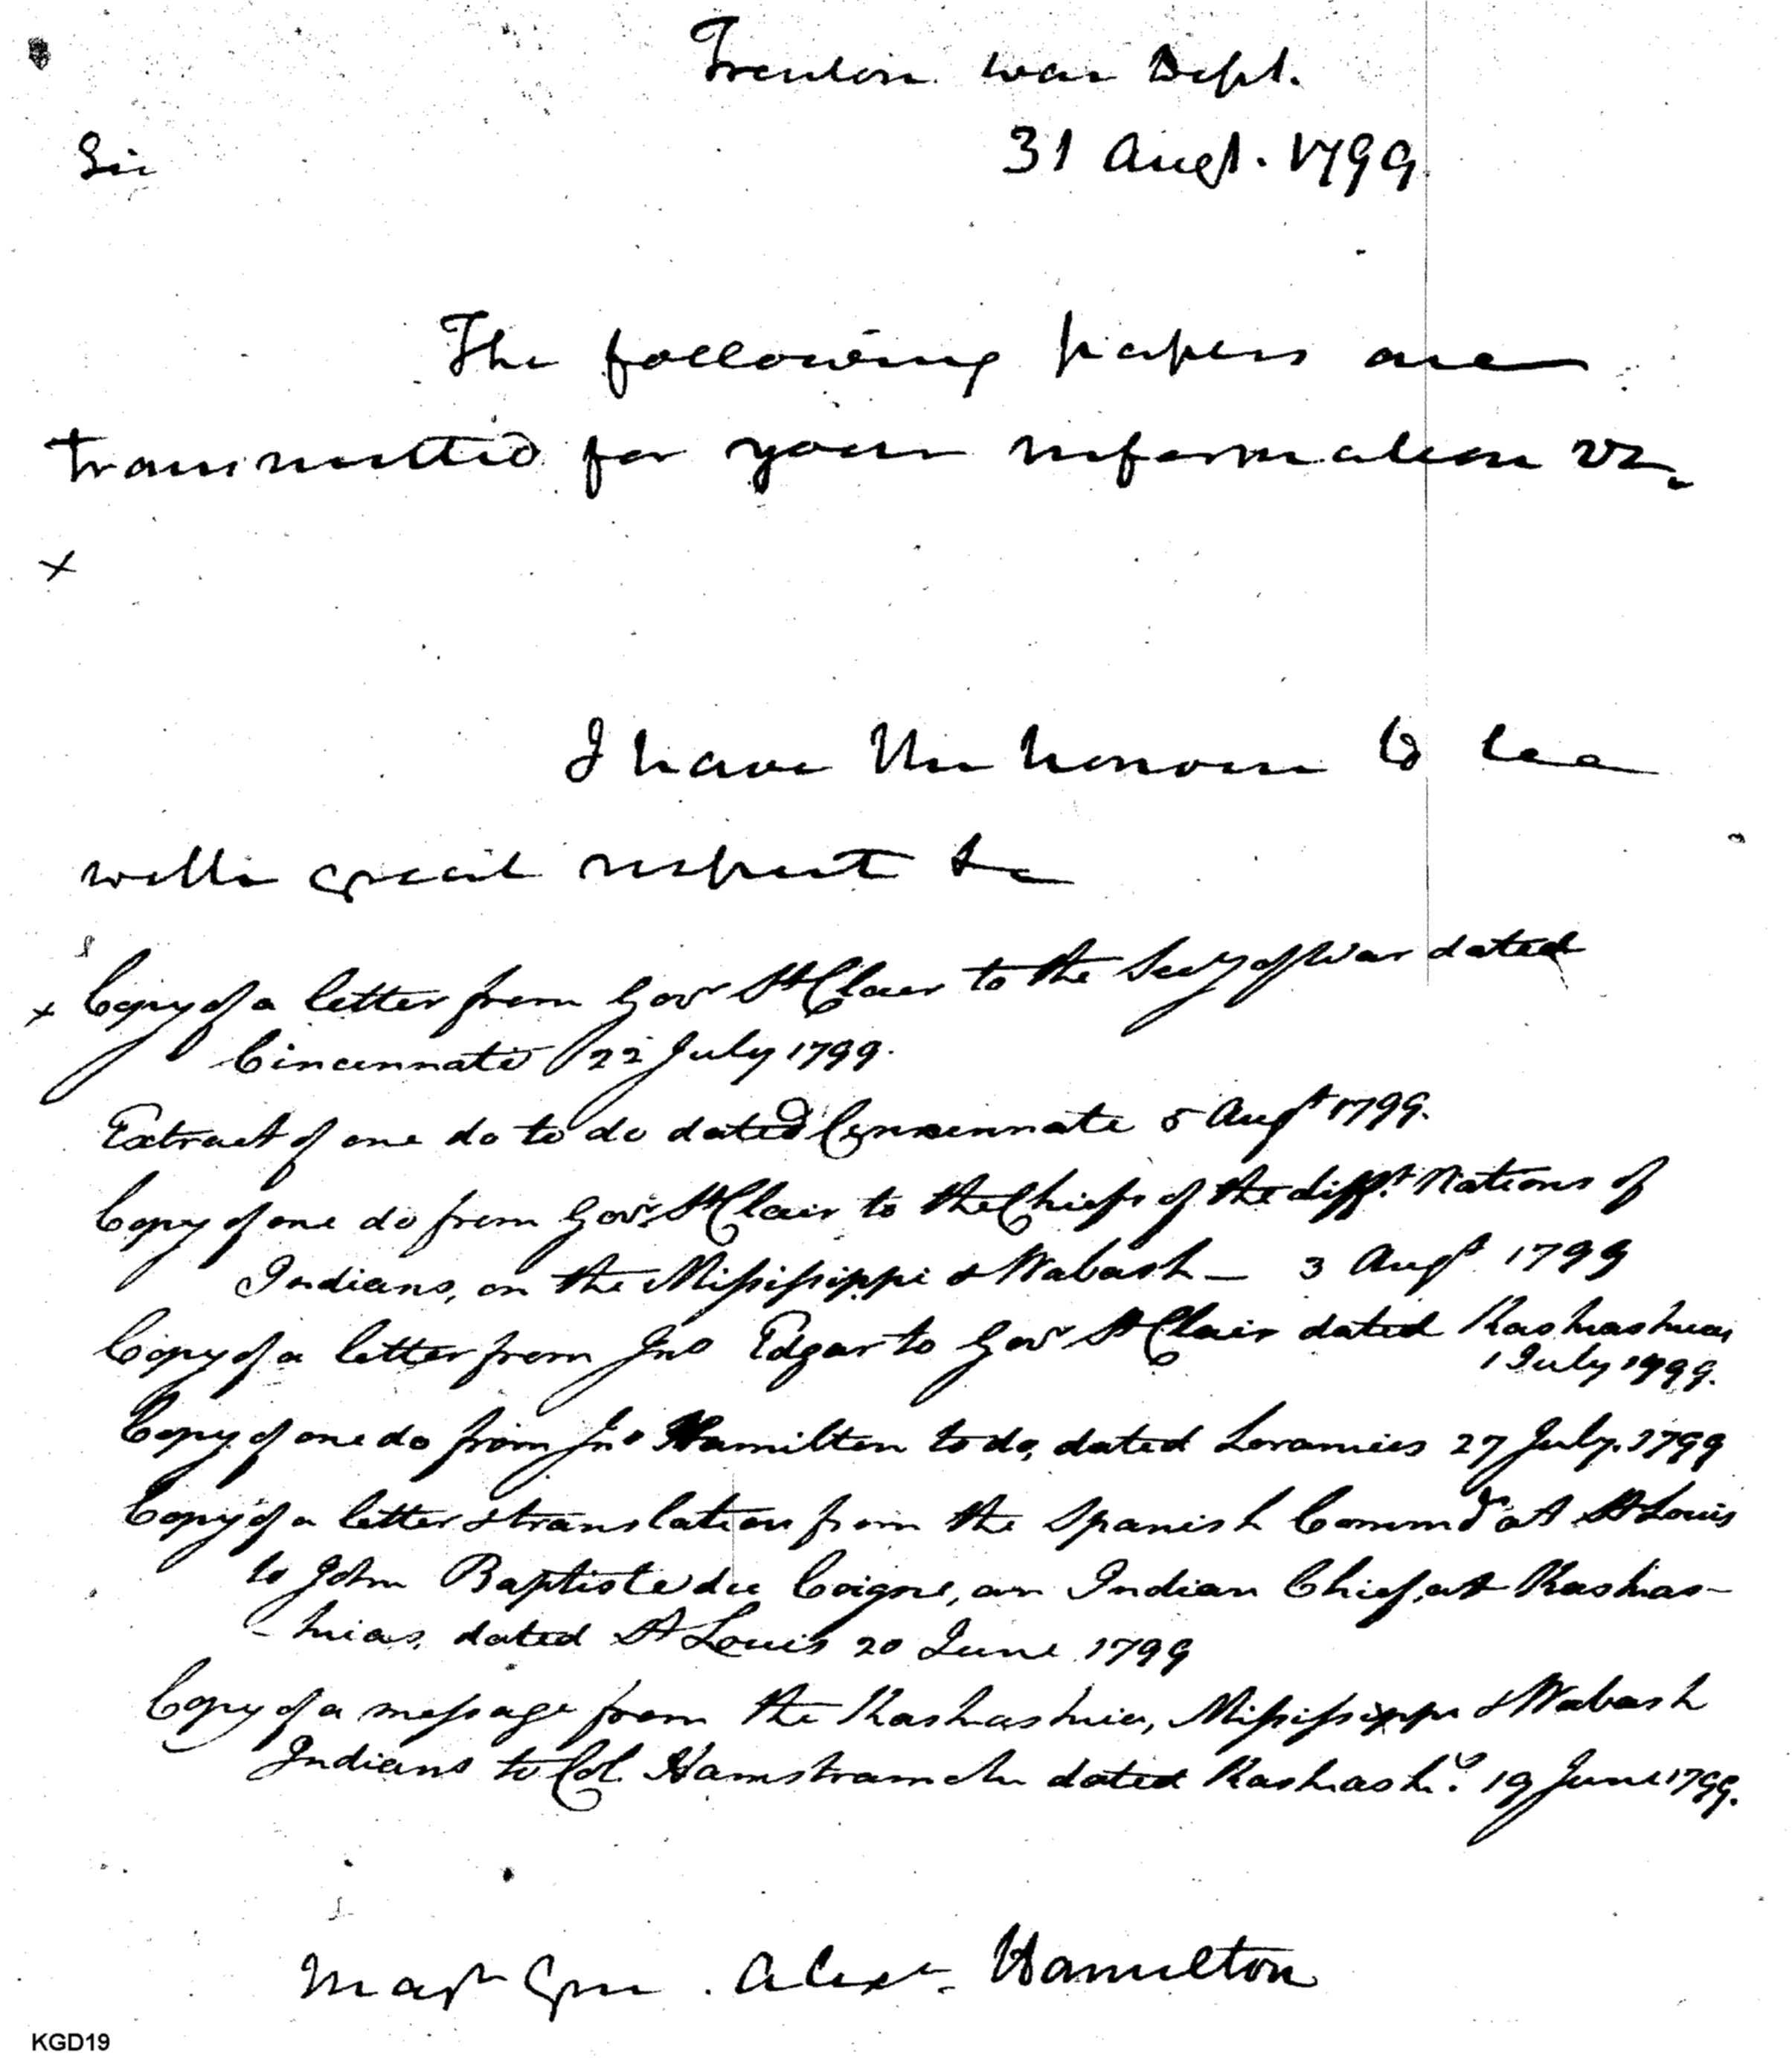 Trenton War Dept.
Sir
31 Augt. 1799
The following papers are
transmitted for your information viz.
x
I have the honour to be
with great respect &c
x Copy of a letter from Govr St Clair to the Secy of War dated
Cincinnati 22 July 1799.
Extract of one do to do dated Cincinnate 5 Augt 1799.
Copy of one do from Govr St Clair to the Chiefs of the difft Nations of
Indians, on the Missisippi & Wabash — 3 Augt 1799
Copy of a letter from Jno Edgar to Govr St Clair dated Kaskaskias
1 July 1799.
Copy of one do from Jno Hamilton to do, dated Loramies 27 July. 1799
Copy of a letter & translation from the Spanish Commdr at St Louis
to John Baptiste du Coigne, an Indian Chief, at Kaskas-
-kias, dated St Louis 20 June 1799
Copy of a message from the Kaskaskia, Missisippi & Wabash
Indians to Col. Hamstramck dated Kaskaska. 19 June 1799.
Majr Gen. Alexr. Hamilton
KGD19